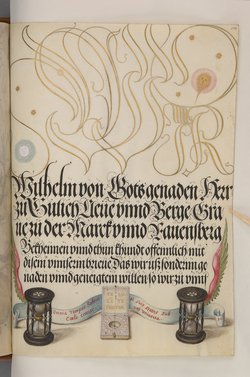 Wilhelm von Gots genaden Her
zu Gulich Cleue vnnd Berge Gra
ue zu der Marck vnnd Rauensberg
Bekhennen vnnd thun khundt offentlich mit
disem vnnserm brieue Das wir vß sondern ge
naden vnnd geneigtem willen so wir zu vnns
Omnia tempus habent